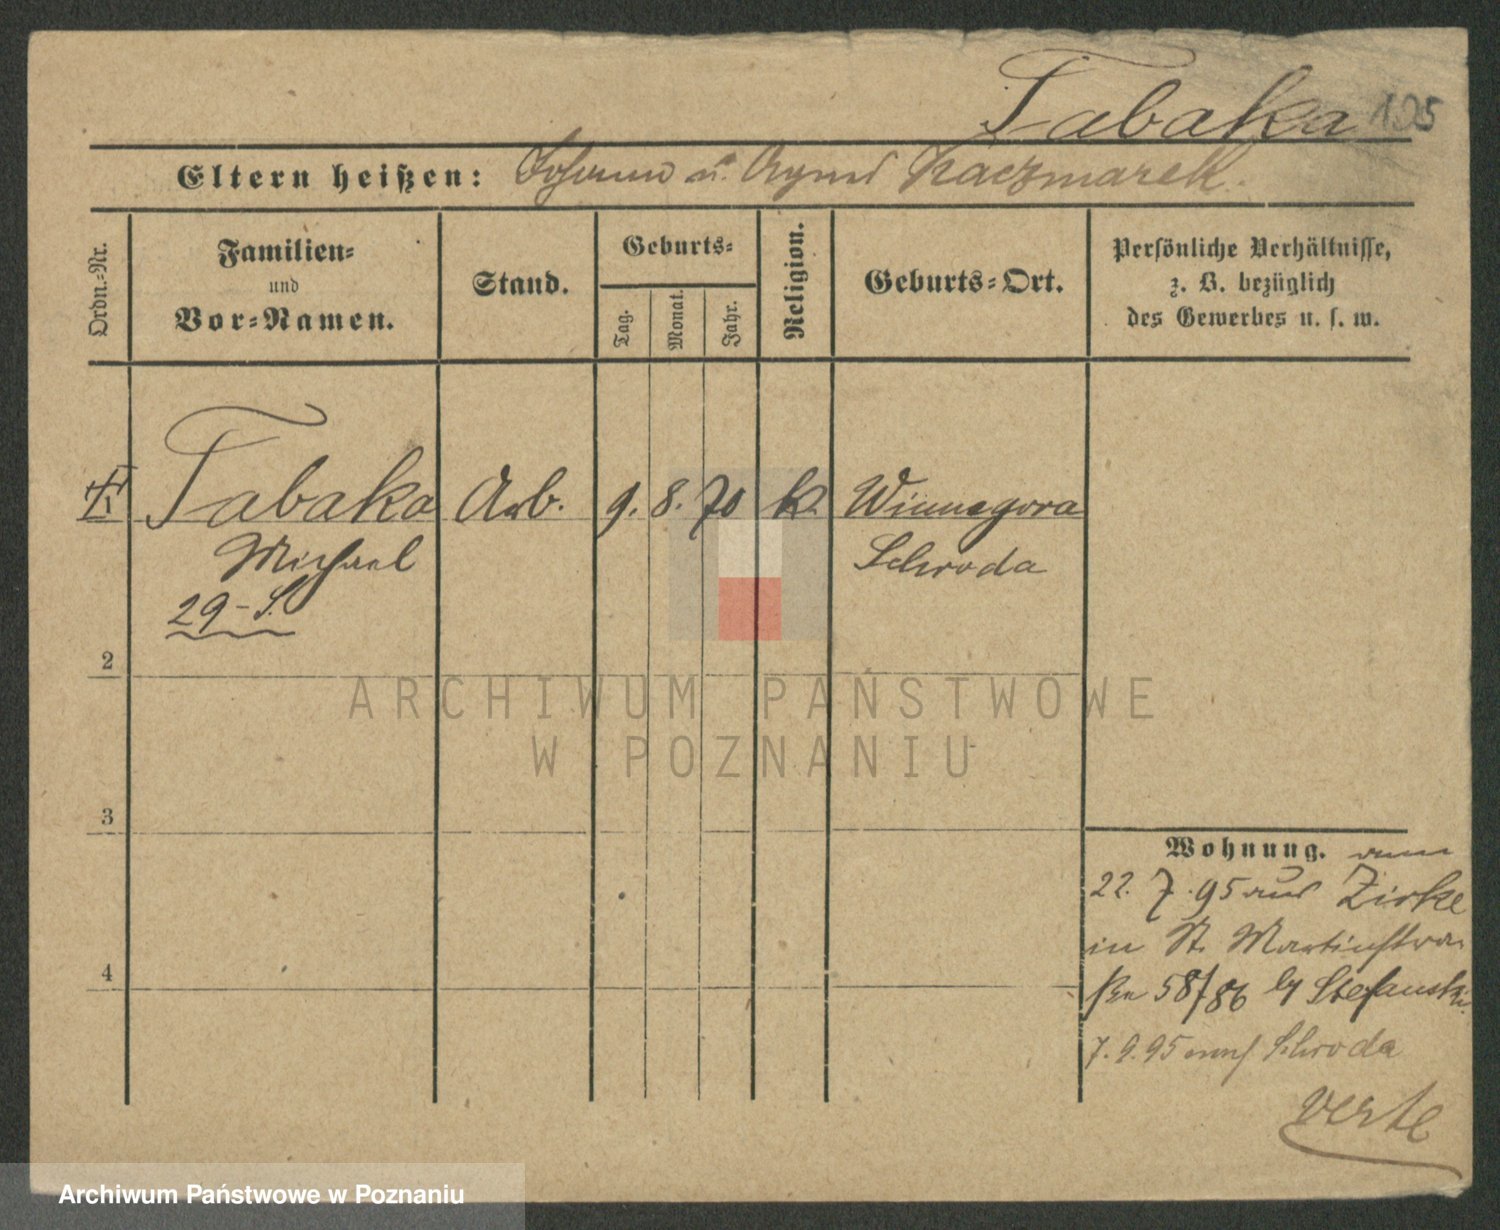 Tabaka 195
Eltern heißen: Johann u. Agnes Kaczmarek.
Ordn.-Nr.
Familien-
und
Vor-Namen.
Stand.
Geburts-
Tag.
Monat.
Jahr.
Religion.
Geburts-Ort.
Persönliche Verhältnisse,
z. B. bezüglich
des Gewerbes u. s. w.
Tabaka Arb. 9. 8. 70 k. Winnegora
Michael Schroda
29-S.
2
3
4
Wohnung.
22. 7. 95 aus Zirke
in St. Martinstra
ßen 58/86 by Stefanski
7. 9. 95 nach Schroda
verte
ARCHIWUM PAŃSTWOWE
W POZNANIU
Archiwum Państwowe w Poznaniu